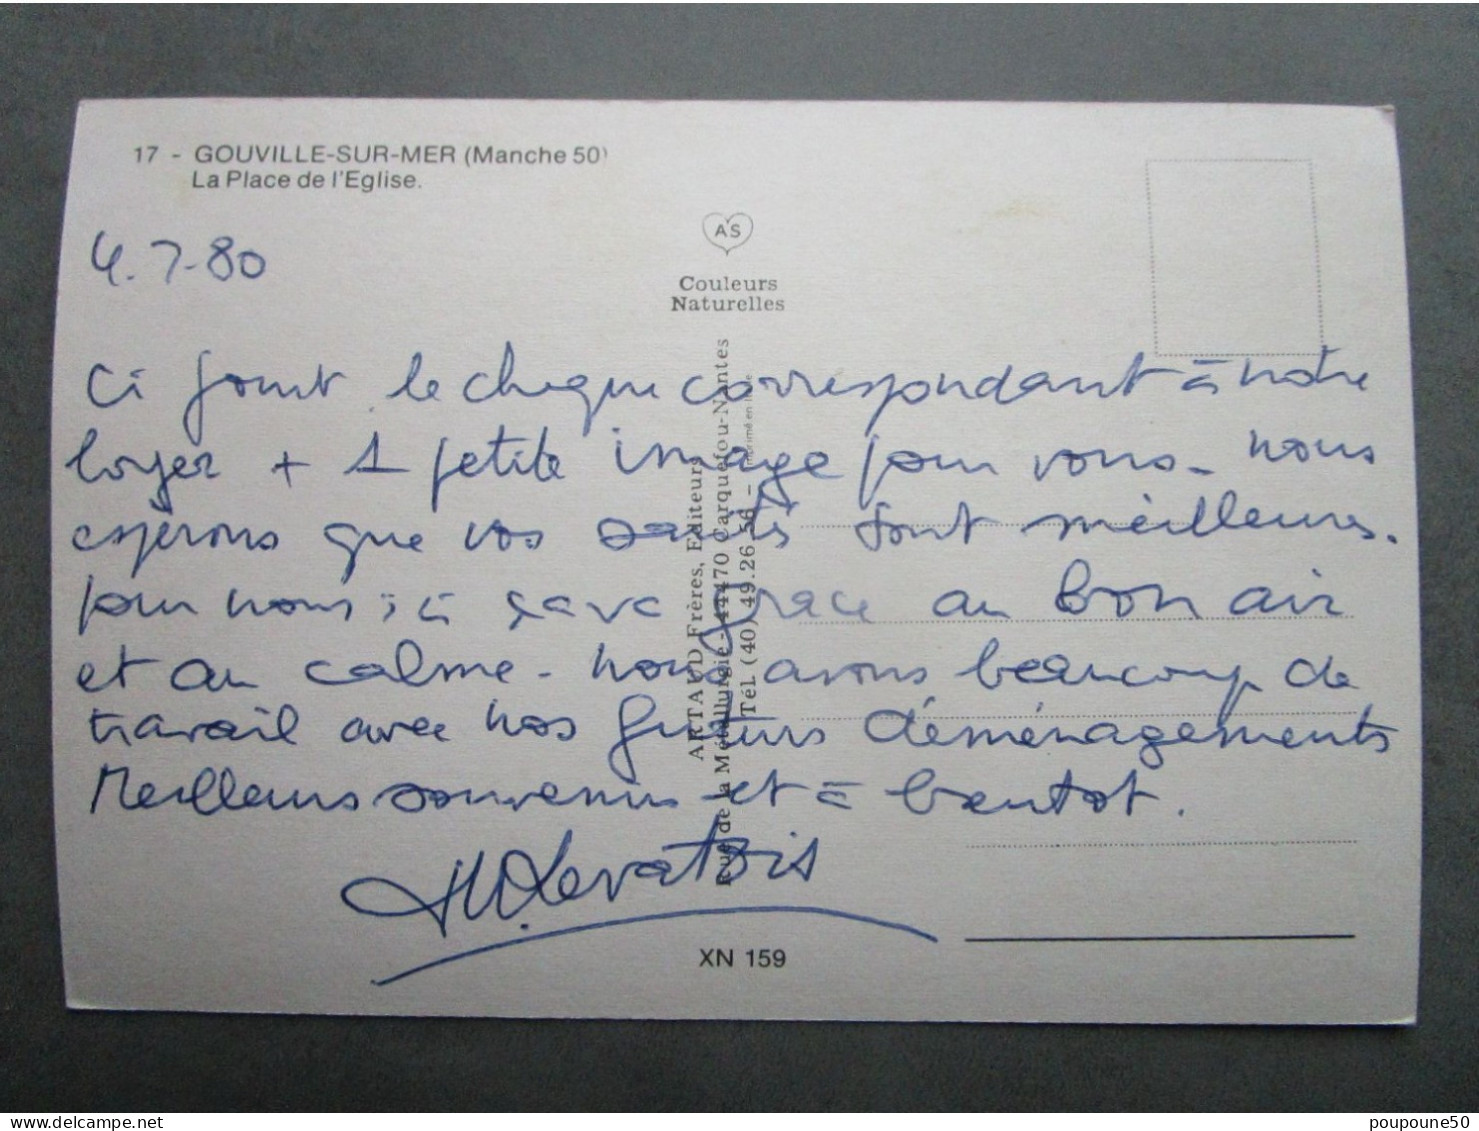 17 - GOUVILLE-SUR-MER (Manche 50)
La Place de l'Eglise.
4.7.80
A S
Couleurs
Naturelles
ARTAUD Frères, Editeurs
Rue de la Métallurgie - 44470 Carquefou-Nantes
Tél. (40) 49.26.56 - Imprimé en
Ci joint le cheque correspondant à notre
loyer + 1 petite image pour vous - nous
esperons que vos santés sont meilleures.
pour nous, ça va grace au bon air
et au calme - nous avons beaucoup de
travail avec nos futurs déménagements
Meilleurs souvenirs et à bientot.
Levatois
XN 159
poupoune50